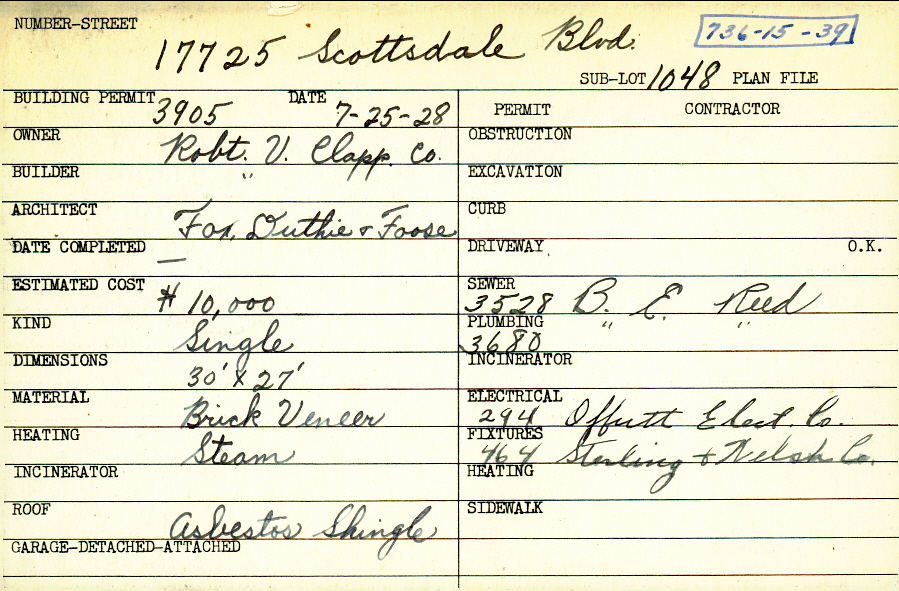 NUMBER-STREET
17725 Scottsdale Blvd. 736-15-39
SUB-LOT 1048 PLAN FILE
BUILDING PERMIT 3905 DATE 7-25-28
PERMIT CONTRACTOR
OWNER Robt. V. Clapp. Co.
OBSTRUCTION
BUILDER "
EXCAVATION
ARCHITECT Fox, Duthie & Foose
CURB
DATE COMPLETED —
DRIVEWAY O.K.
ESTIMATED COST # 10,000
SEWER 3528 B. E. Reed
KIND Single
PLUMBING 3680 " "
DIMENSIONS 30' X 27'
INCINERATOR
MATERIAL Brick Veneer
ELECTRICAL 294 Offutt Elect. Co.
HEATING Steam
FIXTURES 464 Sterling & Welsh Co.
INCINERATOR
HEATING
ROOF Asbestos Shingle
SIDEWALK
GARAGE-DETACHED-ATTACHED